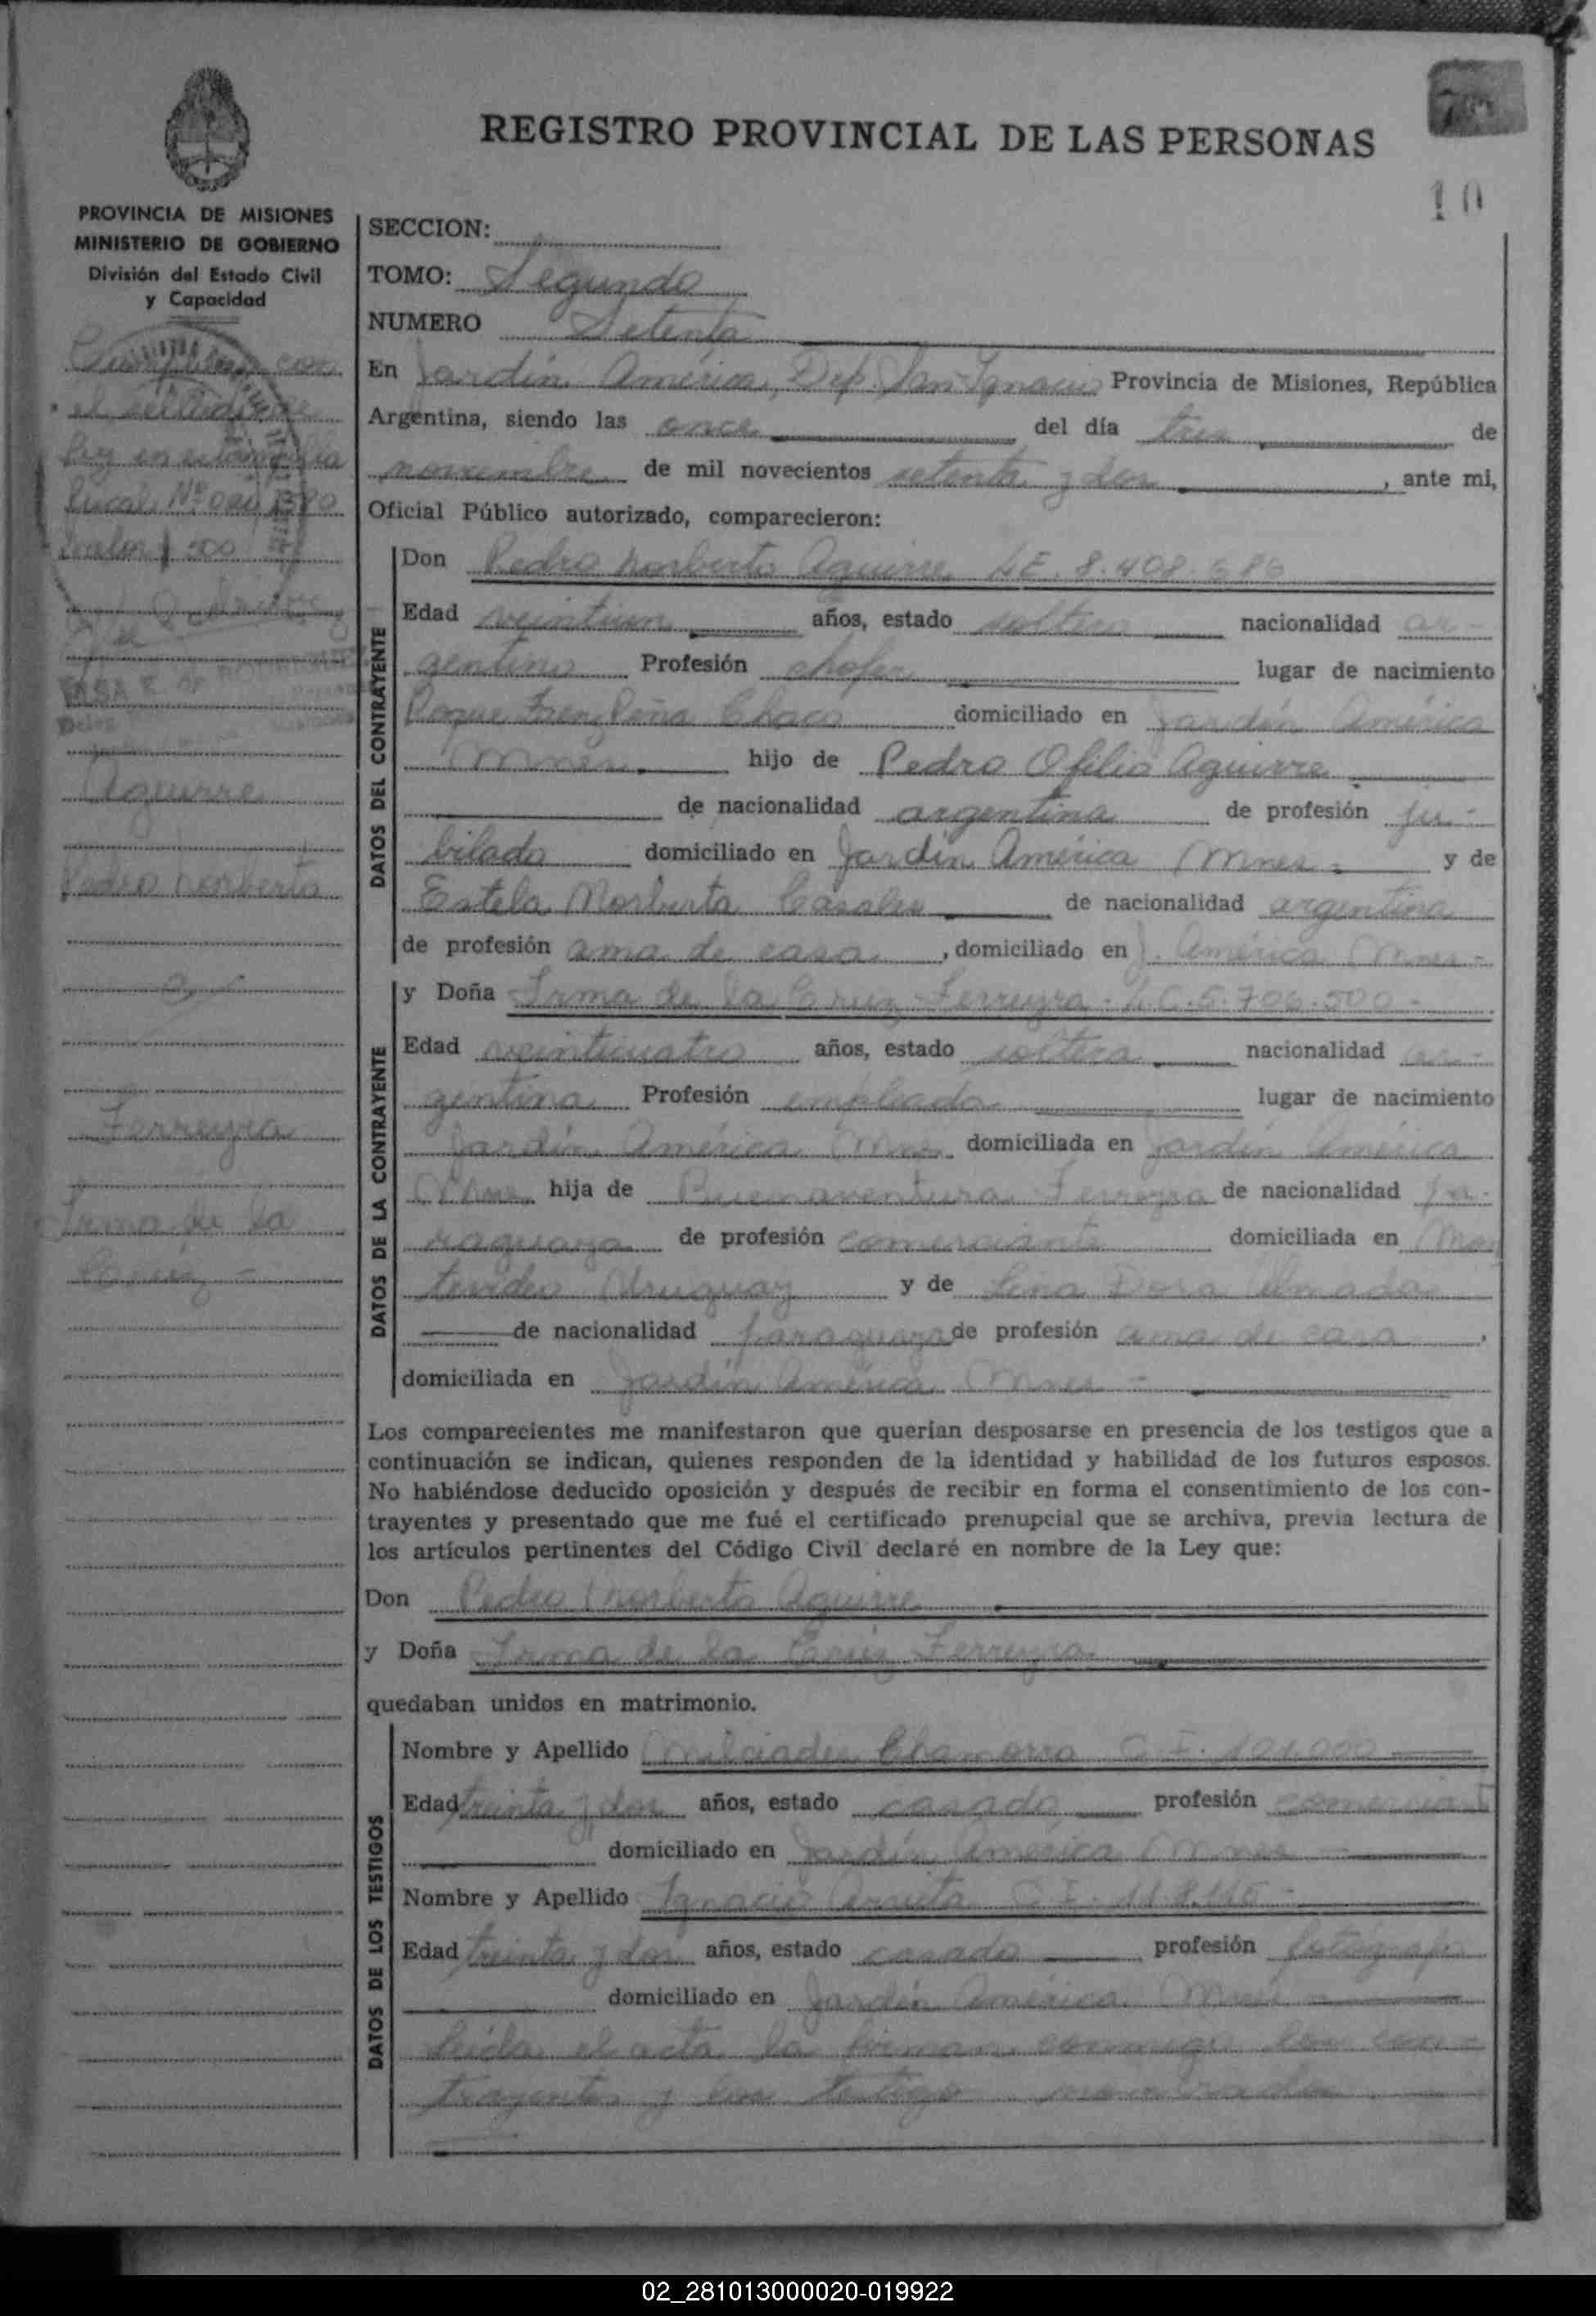 REGISTRO PROVINCIAL DE LAS PERSONAS
10
PROVINCIA DE MISIONES
MINISTERIO DE GOBIERNO
División del Estado Civil
y Capacidad
SECCION:
TOMO: Segundo
NUMERO Setenta
En Jardín América, Dep. San Ignacio Provincia de Misiones, República
Argentina, siendo las once del día tres de
noviembre de mil novecientos setenta y dos, ante mi,
Oficial Público autorizado, comparecieron:
DATOS DEL CONTRAYENTE
Don Pedro Norberto Aguirre LE. 8.408.
Edad veintiun años, estado soltero nacionalidad ar-
gentino Profesión chofer lugar de nacimiento
Roque Peña Chaco domiciliado en Jardín América
Mnes. hijo de Pedro Ofilio Aguirre
de nacionalidad argentina de profesión ju-
bilado domiciliado en Jardín América Mnes. y de
Estela Norberta Casales de nacionalidad argentina
de profesión ama de casa, domiciliado en J. América Mnes-
DATOS DE LA CONTRAYENTE
y Doña Irma de la Cruz Ferreyra. L.C. 5.706.500-
Edad veinticuatro años, estado soltera nacionalidad ar-
gentina Profesión empleada lugar de nacimiento
Jardín América Mnes. domiciliada en Jardín América
Mnes hija de Buenaventura Ferreyra de nacionalidad pa-
raguaya de profesión comerciante domiciliada en Mon
tevideo Uruguay y de Dora Almada
de nacionalidad paraguaya de profesión ama de casa,
domiciliada en Jardín América Mnes -
Los comparecientes me manifestaron que querían desposarse en presencia de los testigos que a
continuación se indican, quienes responden de la identidad y habilidad de los futuros esposos.
No habiéndose deducido oposición y después de recibir en forma el consentimiento de los con-
trayentes y presentado que me fué el certificado prenupcial que se archiva, previa lectura de
los artículos pertinentes del Código Civil declaré en nombre de la Ley que:
Don Pedro Norberto Aguirre
y Doña Irma de la Cruz Ferreyra
quedaban unidos en matrimonio.
DATOS DE LOS TESTIGOS
Nombre y Apellido Milciades Chamorro C.I.
Edad treinta y dos años, estado casado profesión comerciante
domiciliado en Jardín América Mnes -
Nombre y Apellido Ignacio C.I.
Edad treinta y dos años, estado casado profesión fotógrafo
domiciliado en Jardín América Mnes -
Leida el acta la firman conmigo los con-
trayentes y los testigos
Aguirre
Pedro Norberto
y
Ferreyra
Irma de la
Cruz -
02_281013000020-019922